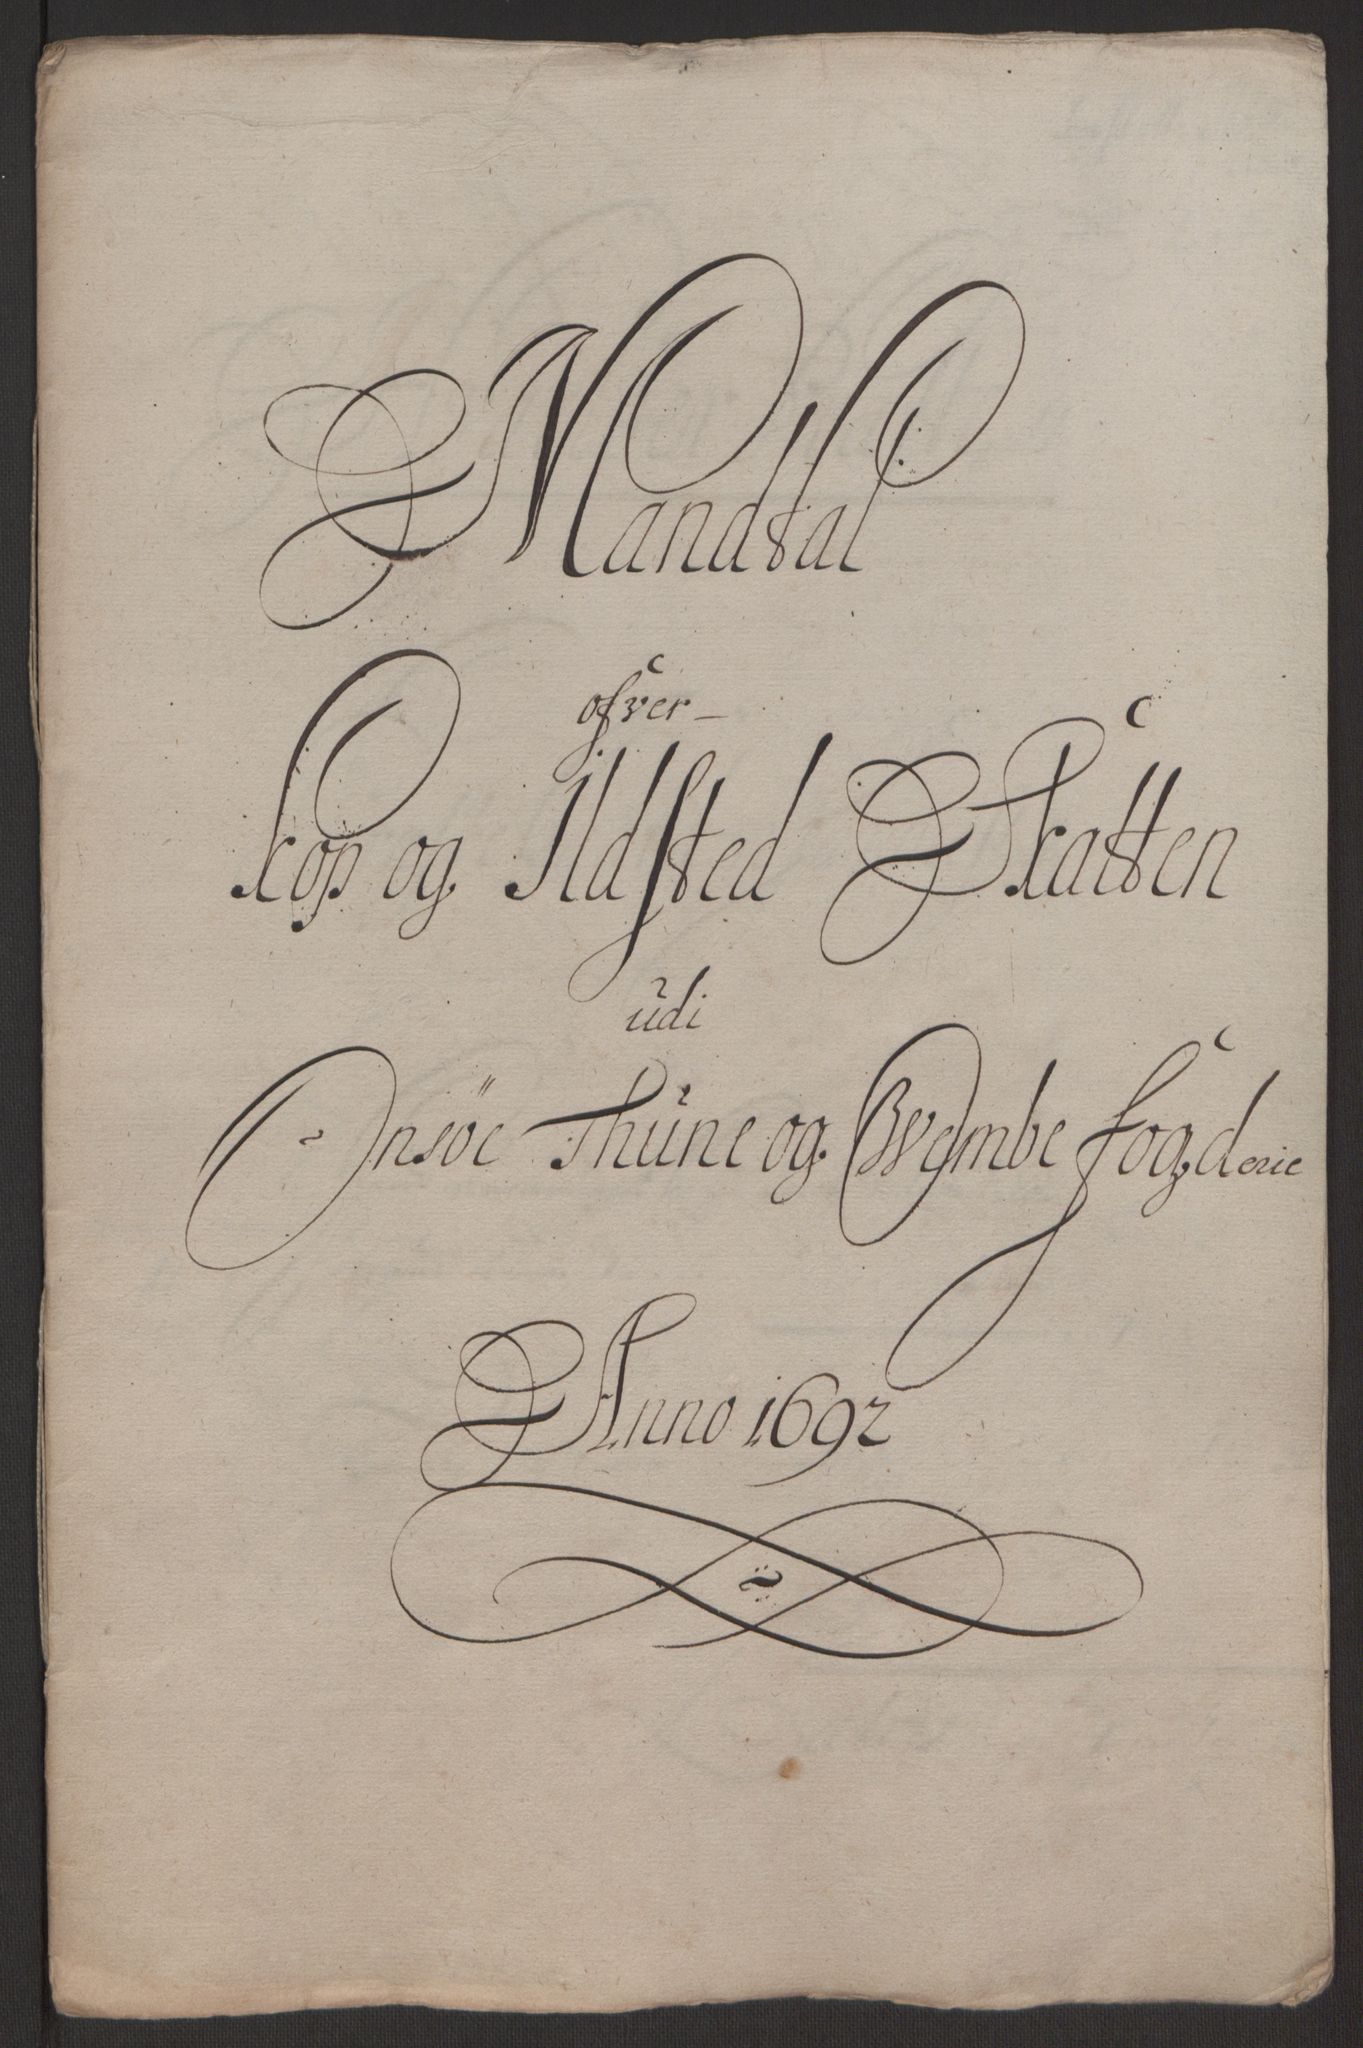 Mandtal
ofver
Kop og Ildsted Skatten
udi
Onsöe Thune og Wembe fogderie
Anno 1692